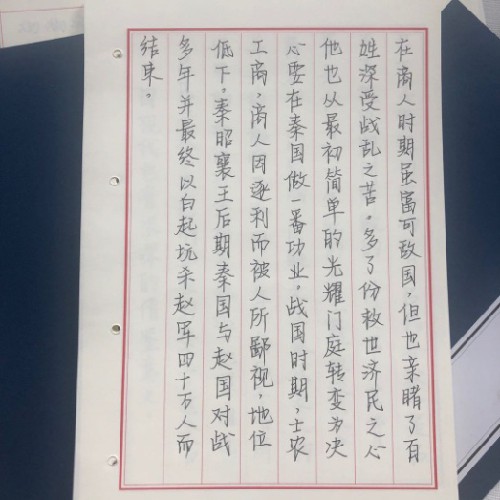 在商人时期虽富可敌国，但也亲睹了百
姓深受战乱之苦。多了份救世济民之心
他也从最初简单的光耀门庭转变为决
心要在秦国做一番功业。战国时期，士农
工商，商人因逐利而被人所鄙视，地位
低下。秦昭襄王后期秦国与赵国对战
多年并最终以白起坑杀赵军四十万人而
结束。